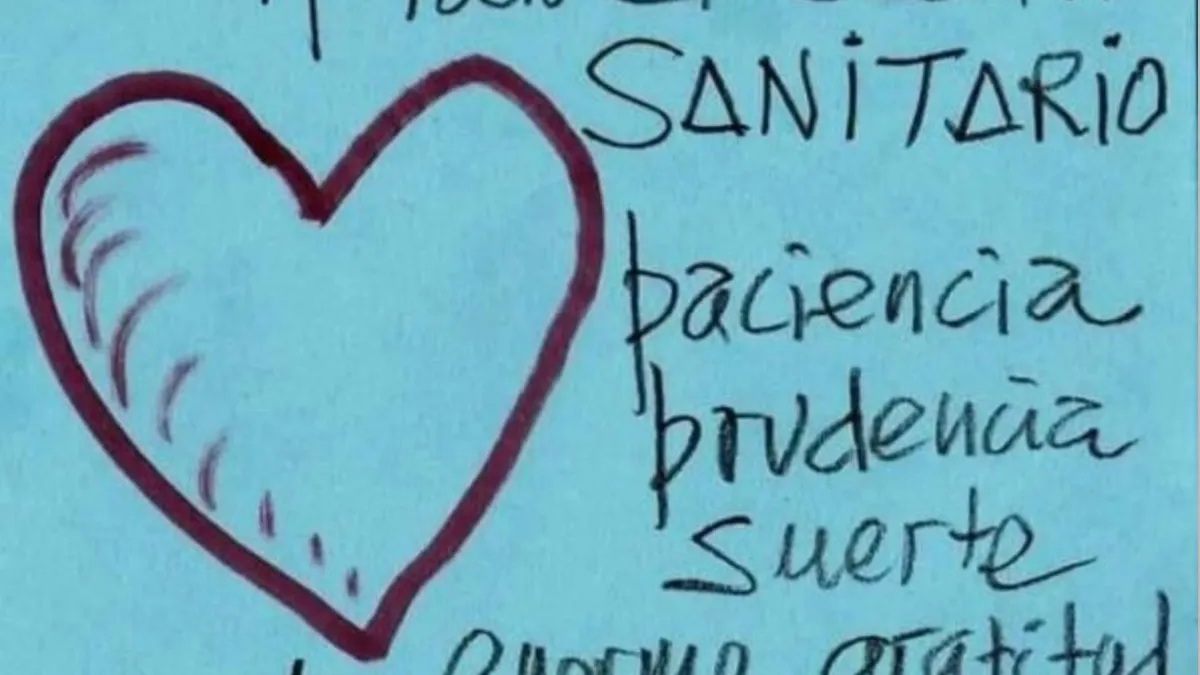 SANITARIO
paciencia
prudencia
suerte
enorme gratitud